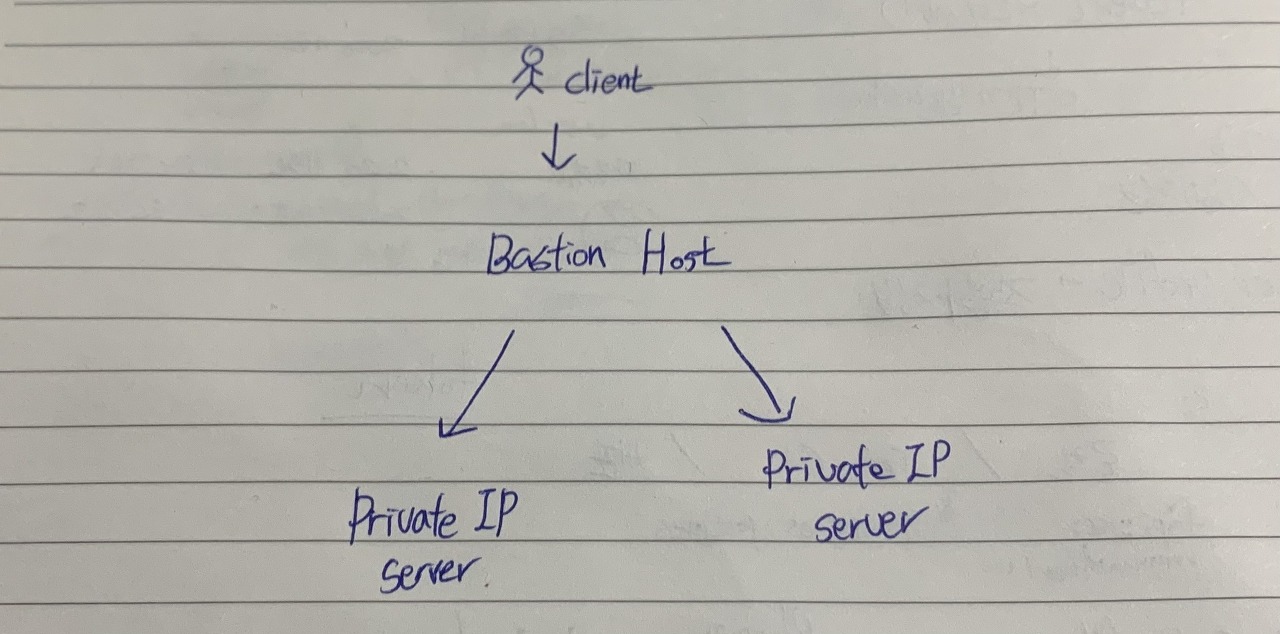 client
Bastion Host
Private IP
server
Private IP
server.